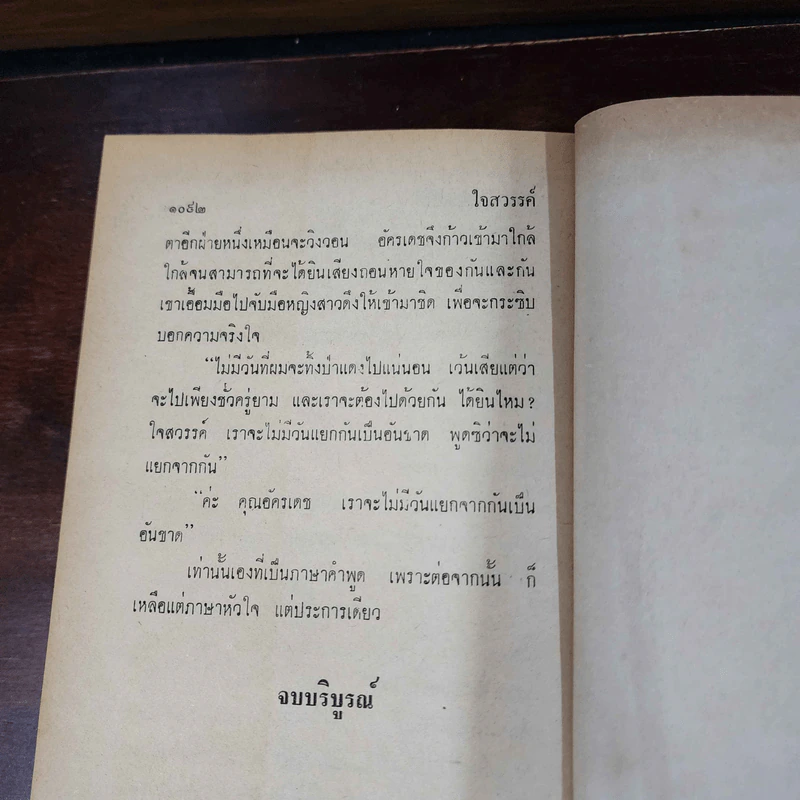 ๑๐๙๒
ใจสวรรค์
ตาอีกฝ่ายหนึ่งเหมือนจะวิงวอน อัครเดชจึงก้าวเข้ามาใกล้
ใกล้จนสามารถที่จะได้ยินเสียงถอนหายใจของกันและกัน
เขาเอื้อมมือไปจับมือหญิงสาวดึงให้เข้ามาชิด เพื่อจะกระซิบ
บอกความจริงใจ
“ไม่มีวันที่ผมจะทิ้งป่าแดงไปแน่นอน เว้นเสียแต่ว่า
จะไปเพียงชั่วครู่ยาม และเราจะต้องไปด้วยกัน ได้ยินไหม?
ใจสวรรค์ เราจะไม่มีวันแยกกันเป็นอันขาด พูดซิว่าจะไม่
แยกจากกัน”
“ค่ะ คุณอัครเดช เราจะไม่มีวันแยกจากกันเป็น
อันขาด”
เท่านั้นเองที่เป็นภาษาคำพูด เพราะต่อจากนั้น ก็
เหลือแต่ภาษาหัวใจ แต่ประการเดียว
จบบริบูรณ์